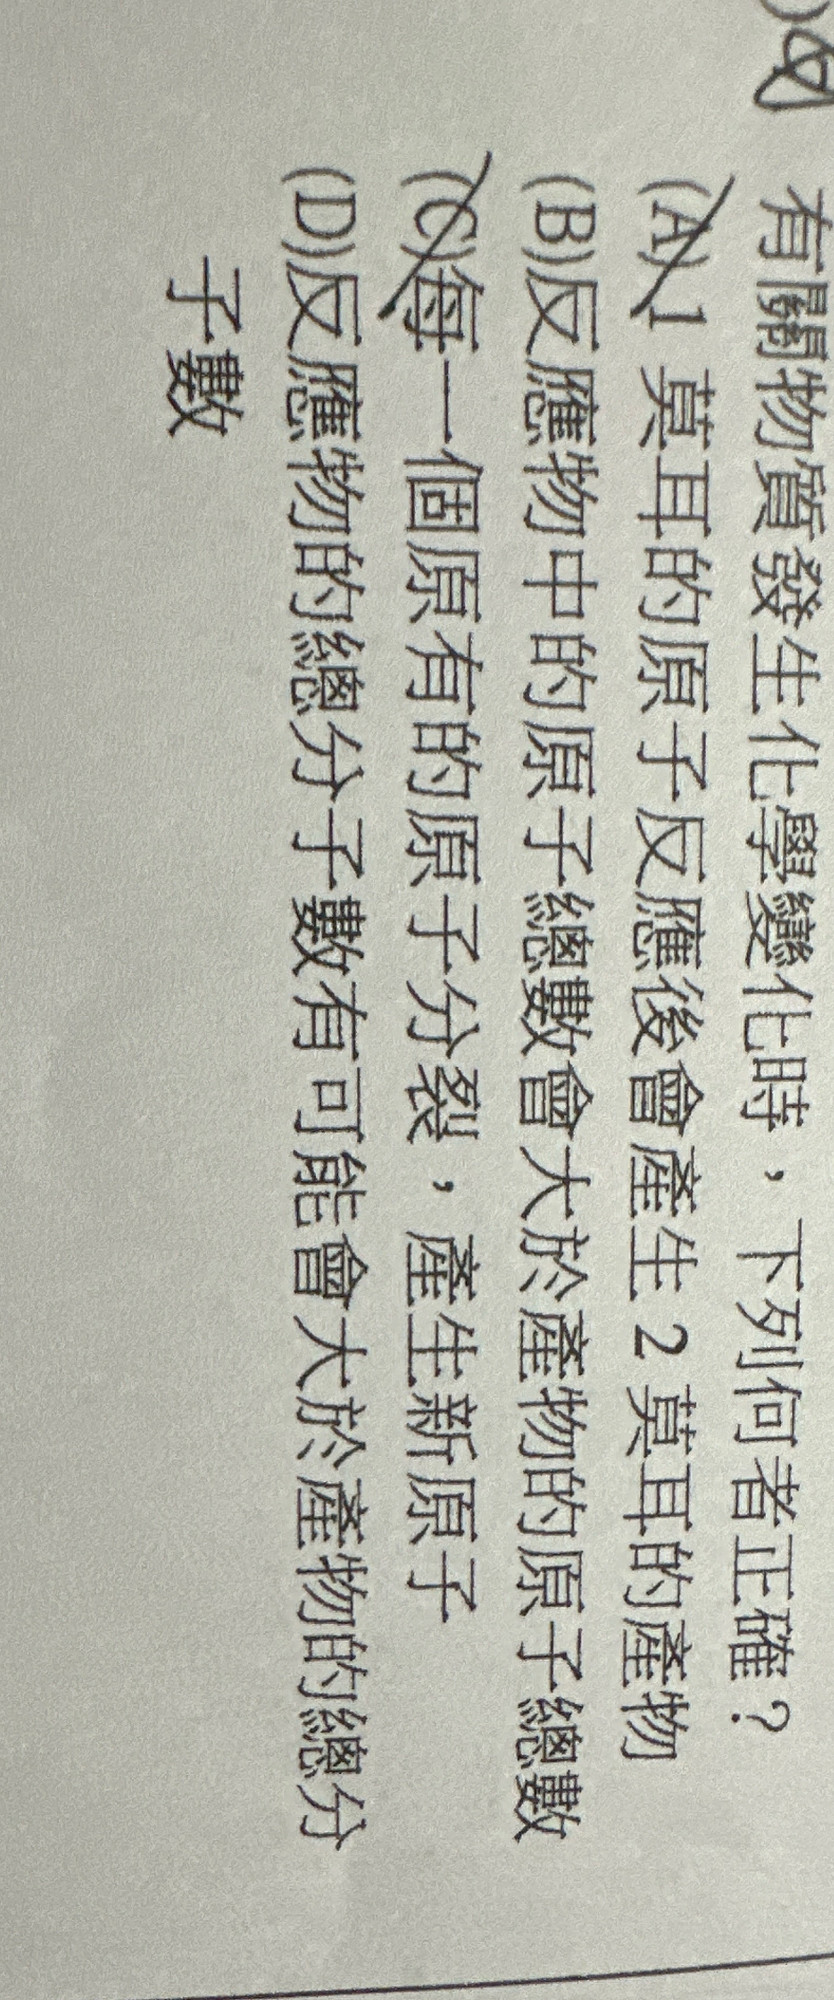 有關物質發生化學變化時，下列何者正確？
(A) 1 莫耳的原子反應後會產生 2 莫耳的產物
(B)反應物中的原子總數會大於產物的原子總數
(C)每一個原有的原子分裂，產生新原子
(D)反應物的總分子數有可能會大於產物的總分
子數